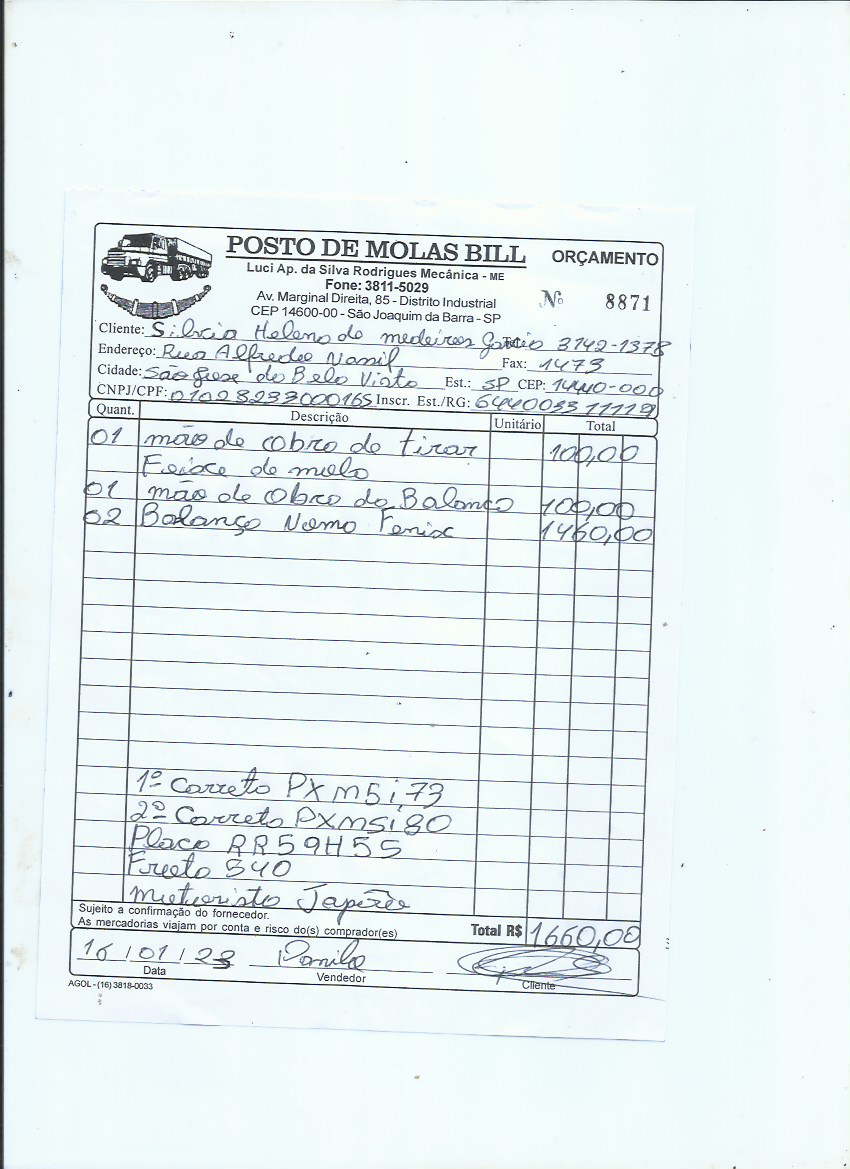 POSTO DE MOLAS BILL
ORÇAMENTO
Luci Ap. da Silva Rodrigues Mecânica - ME
Fone: 3811-5029
Av. Marginal Direita, 85 - Distrito Industrial
CEP 14600-00 - São Joaquim da Barra - SP
Nº 8871
Cliente: Silvio Heleno de medeiros 3142-1378
Endereço: Rua Alfredo Fax: 1473
Cidade: São Jose do Bela Vista Est.: SP CEP: 14440-000
CNPJ/CPF: 01023233000165 Inscr. Est./RG: 644003311119
Quant. Descrição Unitário Total
01 mão de Obra de tirar 100,00
Feixe de mola
01 mão de Obra do Balanço 100,00
02 Balanço 1460,00
1º Carreto PXM5i73
2º Carreto PXM5i80
Placa RR59H55
540
Sujeito a confirmação do fornecedor.
As mercadorias viajam por conta e risco do(s) comprador(es)
Total R$ 1660,00
16/01/23 Danilo
Data Vendedor Cliente
AGOL - (16) 3818-0033